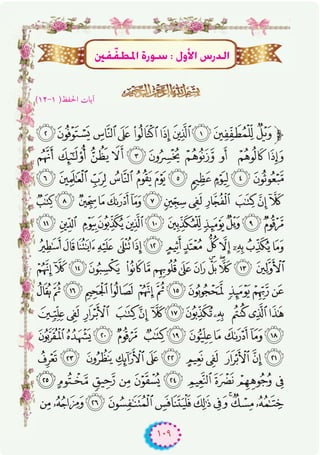 الدرس الأول : سورة المطفّفين
بِسْمِ ٱللَّهِ ٱلرَّحْمَٰنِ ٱلرَّحِيمِ
آيات الحفظ( ١-١٢)
﴿ وَيْلٌ لِّلْمُطَفِّفِينَ ١ ٱلَّذِينَ إِذَا ٱكْتَالُوا۟ عَلَى ٱلنَّاسِ يَسْتَوْفُونَ ٢
وَإِذَا كَالُوهُمْ أَو وَّزَنُوهُمْ يُخْسِرُونَ ٣ أَلَا يَظُنُّ أُو۟لَٰٓئِكَ أَنَّهُم
مَّبْعُوثُونَ ٤ لِيَوْمٍ عَظِيمٍ ٥ يَوْمَ يَقُومُ ٱلنَّاسُ لِرَبِّ ٱلْعَٰلَمِينَ ٦
كَلَّآ إِنَّ كِتَٰبَ ٱلْفُجَّارِ لَفِى سِجِّينٍ ٧ وَمَآ أَدْرَىٰكَ مَا سِجِّينٌ ٨ كِتَٰبٌ
مَّرْقُومٌ ٩ وَيْلٌ يَوْمَئِذٍ لِّلْمُكَذِّبِينَ ١٠ ٱلَّذِينَ يُكَذِّبُونَ بِيَوْمِ ٱلدِّينِ ١١
وَمَا يُكَذِّبُ بِهِۦٓ إِلَّا كُلُّ مُعْتَدٍ أَثِيمٍ ١٢ إِذَا تُتْلَىٰ عَلَيْهِ ءَايَٰتُنَا قَالَ أَسَٰطِيرُ
ٱلْأَوَّلِينَ ١٣ كَلَّا بَلْ رَانَ عَلَىٰ قُلُوبِهِم مَّا كَانُوا۟ يَكْسِبُونَ ١٤ كَلَّآ إِنَّهُمْ
عَن رَّبِّهِمْ يَوْمَئِذٍ لَّمَحْجُوبُونَ ١٥ ثُمَّ إِنَّهُمْ لَصَالُوا۟ ٱلْجَحِيمِ ١٦ ثُمَّ يُقَالُ
هَٰذَا ٱلَّذِى كُنتُم بِهِۦ تُكَذِّبُونَ ١٧ كَلَّآ إِنَّ كِتَٰبَ ٱلْأَبْرَارِ لَفِى عِلِّيِّينَ
١٨ وَمَآ أَدْرَىٰكَ مَا عِلِّيُّونَ ١٩ كِتَٰبٌ مَّرْقُومٌ ٢٠ يَشْهَدُهُ ٱلْمُقَرَّبُونَ
٢١ إِنَّ ٱلْأَبْرَارَ لَفِى نَعِيمٍ ٢٢ عَلَى ٱلْأَرَآئِكِ يَنظُرُونَ ٢٣ تَعْرِفُ
فِى وُجُوهِهِمْ نَضْرَةَ ٱلنَّعِيمِ ٢٤ يُسْقَوْنَ مِن رَّحِيقٍ مَّخْتُومٍ ٢٥
خِتَٰمُهُۥ مِسْكٌ وَفِى ذَٰلِكَ فَلْيَتَنَافَسِ ٱلْمُتَنَٰفِسُونَ ٢٦ وَمِزَاجُهُۥ مِن
١٠٩